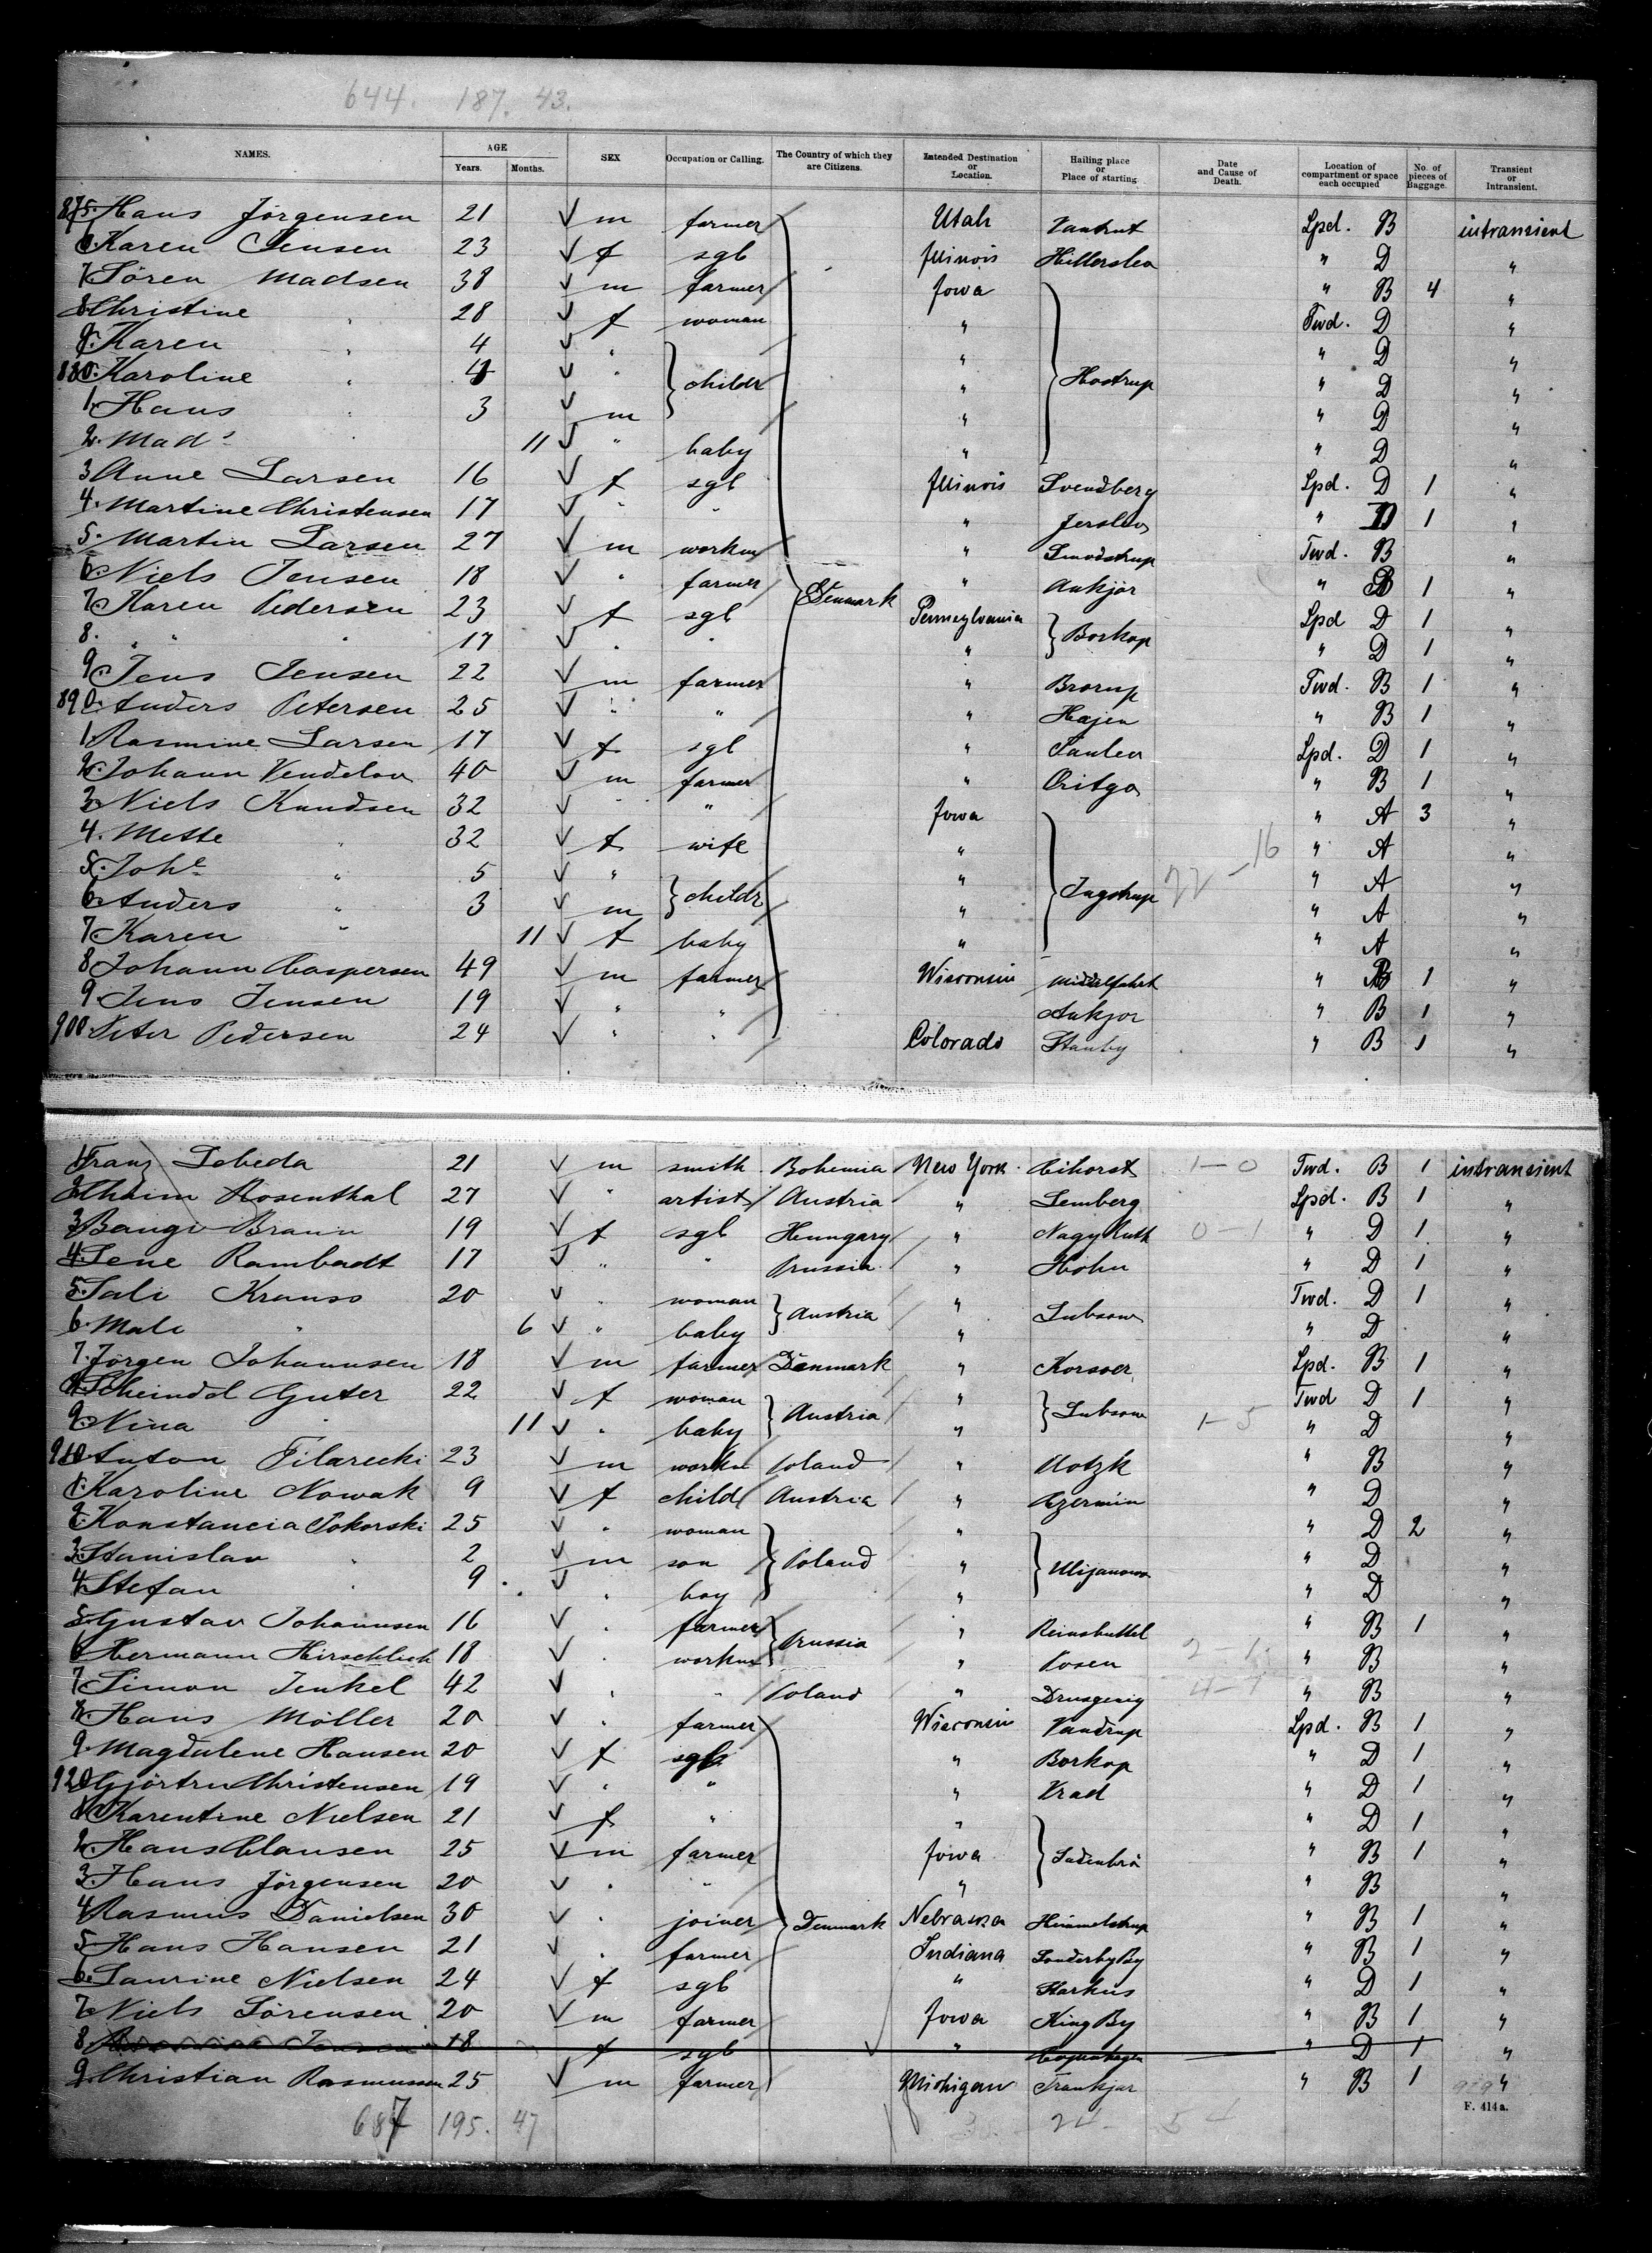 644. 187. 43.
NAMES. AGE Years. Months. SEX Occupation or Calling. The Country of which they are Citizens. Intended Destination or Location. Hailing place or Place of starting Date and Cause of Death. Location of compartment or space each occupied No. of pieces of Baggage. Transient or Intransient.
875. Hans Jörgensen 21 √ m farmer Utah Lpd. B intransient
6. Karen Jensen 23 √ f sgl Illinois Hillerslev " D "
7. Sören Madsen 38 √ m farmer Iowa " B 4 "
8. Christine " 28 √ f woman " Twd. D "
9. Karen " 4 √ " " " D "
880. Karoline " 4 √ " } childr " } Hostrup " D "
1. Hans " 3 √ m " " D "
2. Mads 11 √ " baby " " D "
3. Anne Larsen 16 √ f sgl Illinois Svendberg Lpd. D 1 "
4. Martine Christensen 17 √ " " " Jerslev " D 1 "
5. Martin Larsen 27 √ m workm " Smodstrup Twd. B "
6. Niels Jensen 18 √ " farmer } Denmark " Ankjör " B 1 "
7. Karen Pedersen 23 √ f sgl Pennsylvania } Borkop Lpd D 1 "
8. " " 17 √ " " " " D 1 "
9. Jens Jensen 22 √ m farmer " Brörup Twd. B 1 "
890. Anders Petersen 25 √ " " " Hajen " B 1 "
1. Rasmine Larsen 17 √ f sgl " Taulev Lpd. D 1 "
2. Johann Vendelov 40 √ m farmer " " B 1 "
3. Niels Knudsen 32 √ " " Iowa " A 3 "
4. Mette " 32 √ f wife " " A "
5. Johe " 5 √ " } childr " } Jagstrup 22-16 " A "
6. Anders " 3 √ m " " A "
7. Karen " 11 √ f baby " " A "
8. Johann Caspersen 49 √ m farmer Wisconsin Middelfahrt " B 1 "
9. Jens Jensen 19 √ " " Ankjor " B 1 "
900. Peter Pedersen 24 √ " " Colorado Stauby " B 1 "
1. Franz Lebeda 21 √ m smith Bohemia New York Cihorst 1-0 Twd. B 1 intransient
2. Chaim Rosenthal 27 √ " artist Austria " Lemberg Lpd. B 1 "
3. Braun 19 √ f sgl Hungary " Nagy 0-1 " D 1 "
4. Lene Rambadt 17 √ " " Prussia " Hohn " D 1 "
5. Sali Krauss 20 √ " woman } Austria " Lubaow Twd. D 1 "
6. Male " 6 √ " baby " " D "
7. Jörgen Johannsen 18 √ m farmer Denmark " Korsoer Lpd. B 1 "
8. Scheindel Guter 22 √ f woman } Austria " } Lubaow Twd D 1 "
9. Nina " 11 √ " baby " 1-5 " D "
910. Anton Filarecki 23 √ m workm Poland " Plotzk " B "
1. Karoline Nowak 9 √ f child Austria " Czermin " D "
2. Konstancia Pokorski 25 √ " woman " " D 2 "
3. Stanislav " 2 √ m son } Poland " } Ulijanowo " D "
4. Stefan " 9 √ " boy " " D "
5. Gustav Johannsen 16 √ " farmer } Prussia " Reinsbuttel " B 1 "
6. Hermann Hirschlich 18 √ " workm " Posen 2-1 " B "
7. Simon Jenkel 42 √ " " Poland " 4-1 " B "
8. Hans Möller 20 √ " farmer Wisconsin Vamdrup Lpd. B 1 "
9. Magdalene Hansen 20 √ f sgl " Borkop " D 1 "
920. Gjörtru Christensen 19 √ " " " Vrad " D 1 "
1. Karentine Nielsen 21 √ f " " " D 1 "
2. Hans Clausen 25 √ m farmer Iowa } " B 1 "
3. Hans Jörgensen 20 √ " " " " B "
4. Rasmus Danielsen 30 √ " joiner } Denmark Nebraska Himmelstrup " B 1 "
5. Hans Hansen 21 √ " farmer Indiana Sonderby By " B 1 "
6. Laurine Nielsen 24 √ f sgl " Starhus " D 1 "
7. Niels Sörensen 20 √ m farmer Iowa King By " B 1 "
8. 18 f sgl " Copenhagen " D 1 "
9. Christian Rasmussen 25 √ m farmer Michigan Trankjar " B 1 "
687 195. 47 24 54 929
F. 414 a.